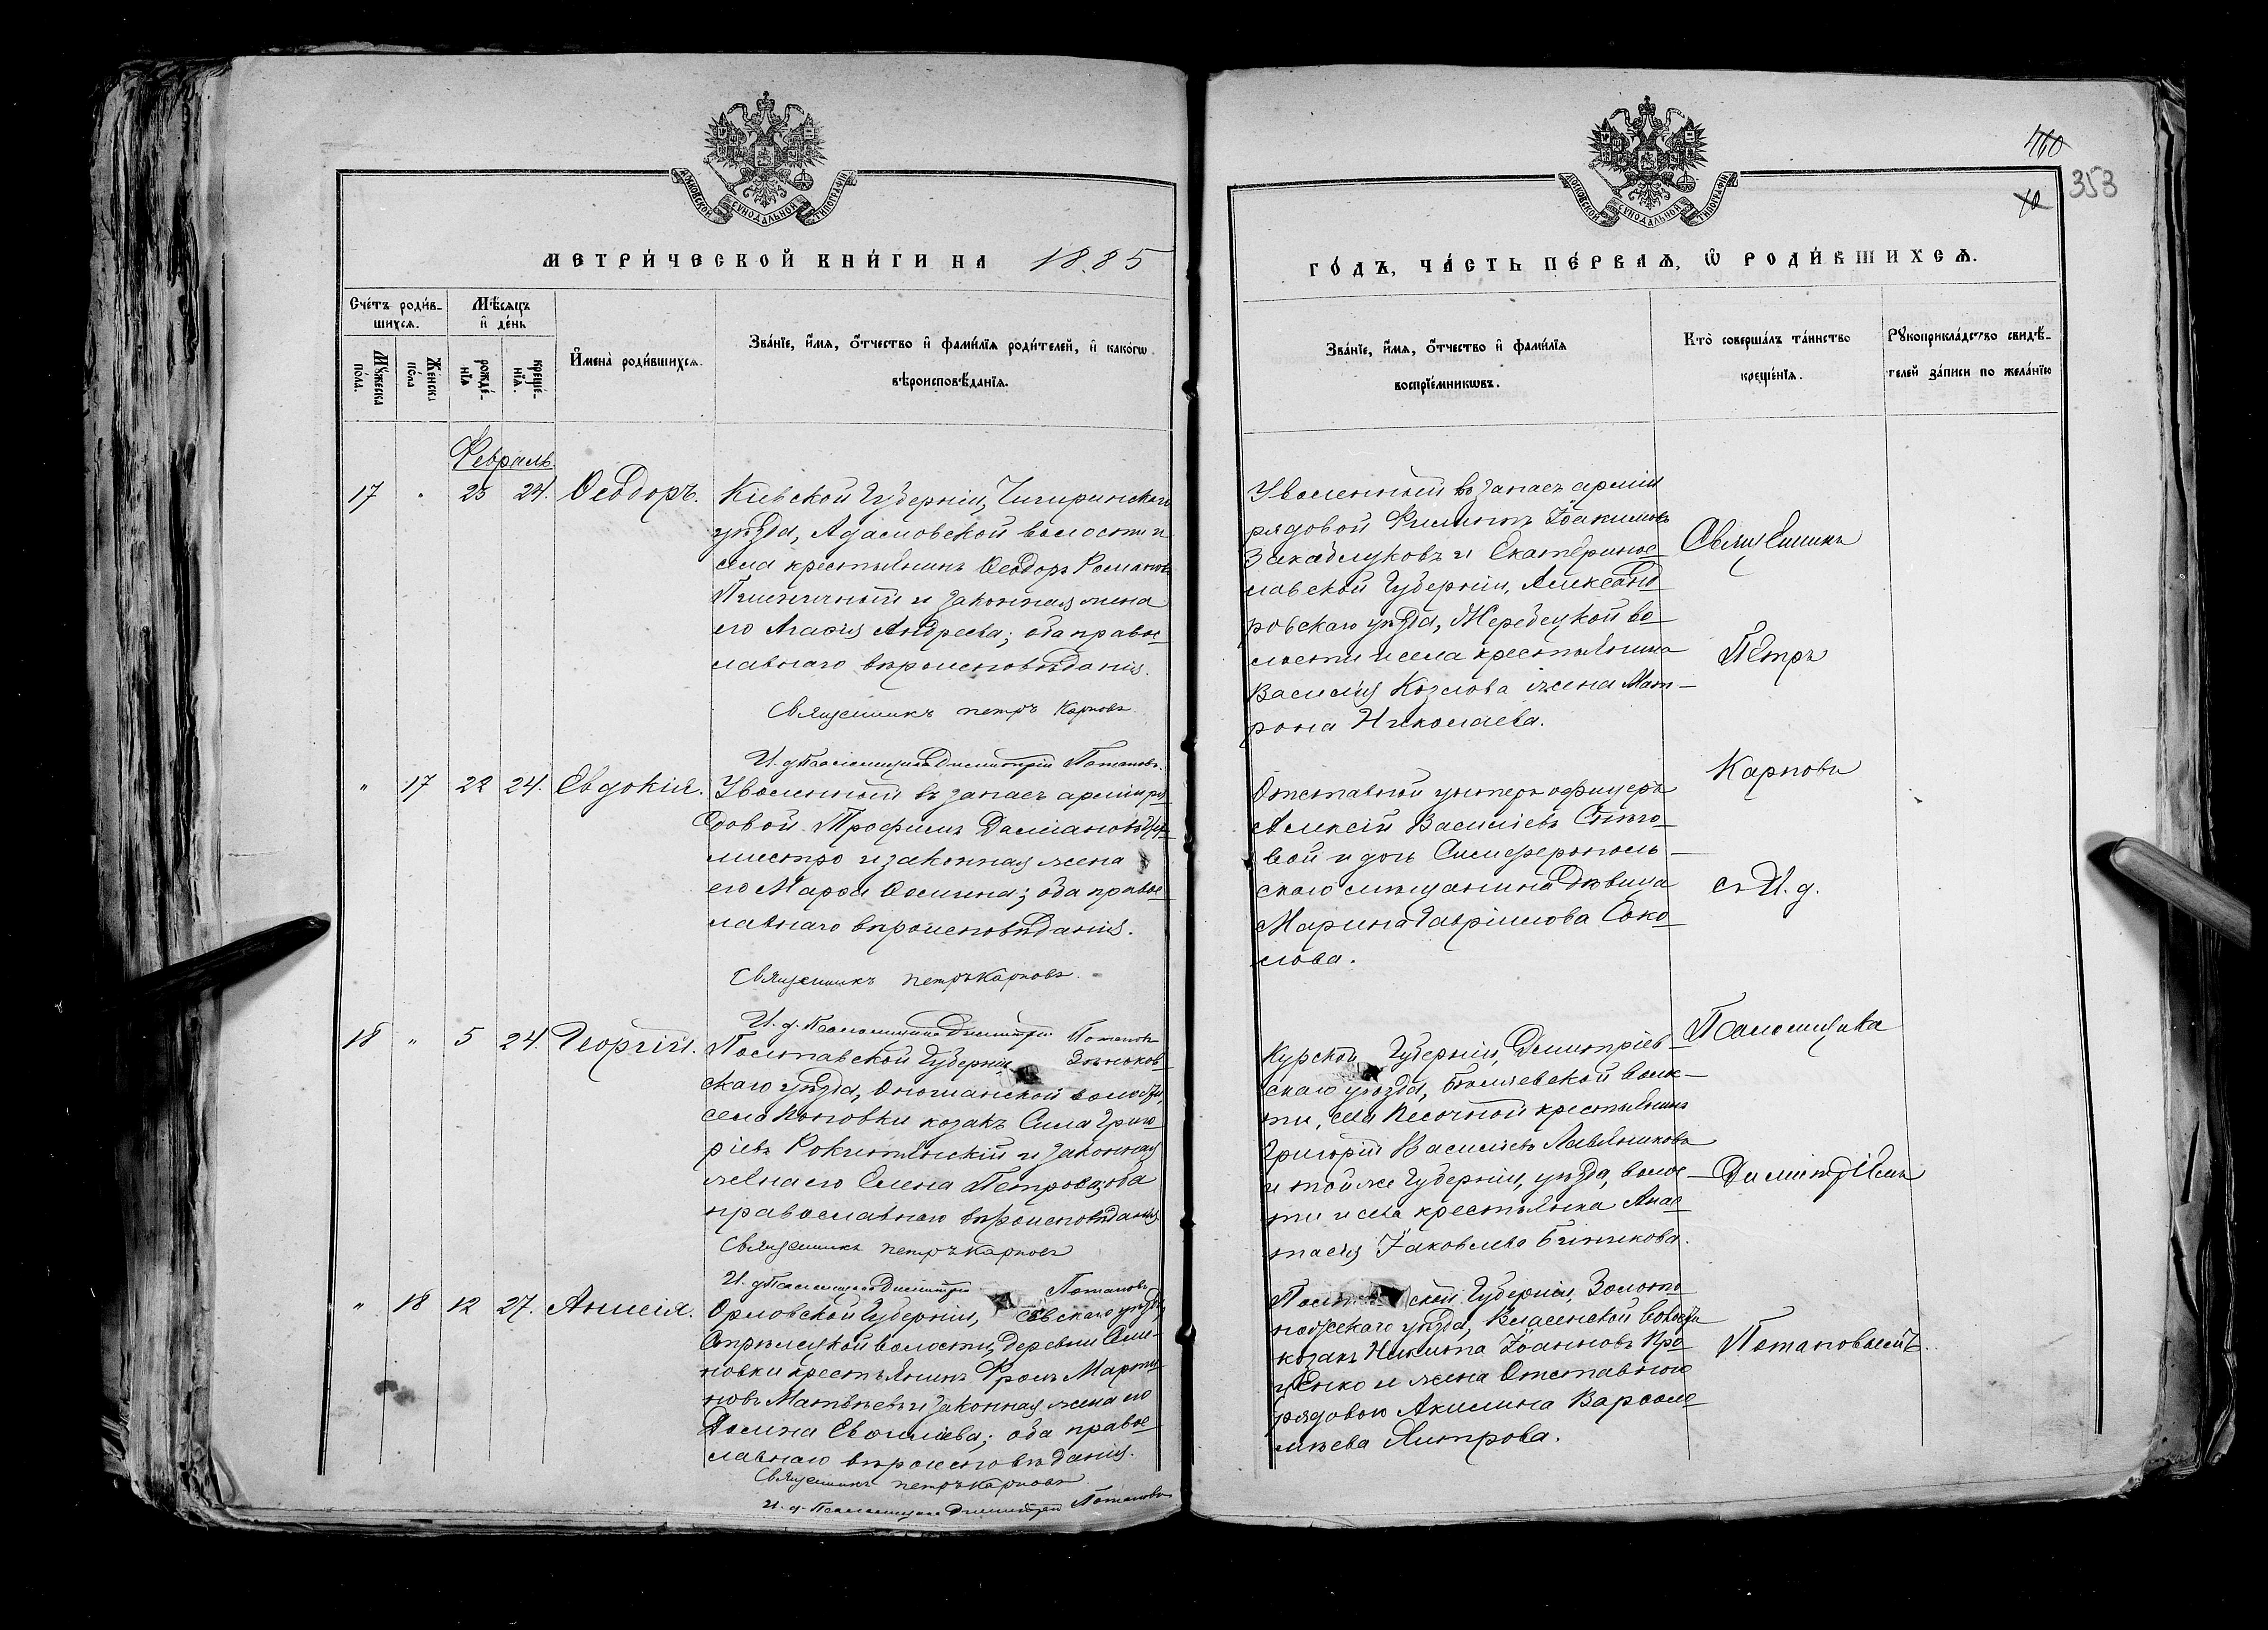 МОСКОВСКОЙ СѴНОДАЛЬНОЙ ТИПОГРАФІИ
МЕТРИ́ЧЕСКОЙ КНИ́ГИ НА 1885
Сче́тъ роди́в-
шихсѧ.
Мѣ́сѧцъ
и҆ де́нь
Мꙋ́жеска
по́ла.
Же́нска
по́ла
рожде́-
нїѧ
креще́-
нїѧ.
И҆мена̀ роди́вшихсѧ.
Зва́нїе, и҆́мѧ, ѻ҆́тчество и҆ фами́лїѧ роди́телей, и҆ како́гѡ
вѣроисповѣ́данїѧ.
Февраль
17 " 23 24. Ѳеодоръ.
Кіевской Губерніи, Чигиринскаго
уѣзда, Адамовской волости и
села крестьянинъ Ѳеодоръ Романовъ
Пшеничный и законная жена
его Агаѳія Андреева; оба правос-
лавнаго вѣроисповѣданія.
Священникъ Петръ Карповъ
И. д. Псаломщика Димитрій Потаповъ.
" 17 22 24. Евдокія.
Уволенный въ запасъ арміи ря-
довой Трофимъ Даміановъ
и законная жена
его Марѳа Ѳомина; оба правос-
лавнаго вѣроисповѣданія.
Священникъ Петръ Карповъ
И. д. Псаломщика Димитрій Потаповъ
18 " 5 24. Георгій.
Полтавской Губерніи Зѣньков-
скаго уѣзда, волости,
села Поповки козакъ Сила Григо-
рьевъ Рокитянскій и законная
жена его Елена Петрова; оба
православнаго вѣроисповѣданія
Священникъ Петръ Карповъ
И. д. Псаломщика Димитрій Потаповъ
" 18 12 27. Анисія.
Орловской Губерніи, Сѣвскаго уѣзда,
волости, деревни
крестьянинъ Фролъ Марти-
новъ Матвѣевъ и законная жена его
Домна оба правос-
лавнаго вѣроисповѣданія.
Священникъ Петръ Карповъ
И. д. Псаломщика Димитрій Потаповъ
460
10
353
МОСКОВСКОЙ СѴНОДАЛЬНОЙ ТИПОГРАФІИ
ГО́ДЪ, ЧА́СТЬ ПЕ́РВАѦ, Ѡ҆ РОДИ́ВШИХСѦ.
Зва́нїе, и҆́мѧ, ѻ҆́тчество и҆ фами́лїѧ
воспрїе́мникѡвъ.
Кто̀ соверша́лъ та́инство
креще́нїѧ.
Рꙋкоприкла́дство свидѣ́-
телей за́писи по жела́нїю
Уволенный въ запасъ арміи
рядовой Филиппъ Іоакимовъ
Закаблуковъ и Екатеринос-
лавской Губерніи, Александ-
ровскаго уѣзда, Жеребецкой во-
лости и села крестьянина
Василія Козлова жена Мат-
рона Николаева.
Отставной унтеръ офицеръ
Алексій Васильевъ
и дочь Симферополь-
скаго мѣщанина дѣвица
Марина Гавріилова Соко-
лова.
Курской Губерніи, Димитріев-
скаго уѣзда, волос-
ти, села Песочной крестьянинъ
Григорій Васильевъ
и той же Губерніи, уѣзда, волос-
ти и села крестьянка Анас-
тасія Іаковлева
Полтавской Губерніи, Золото-
ношскаго уѣзда, волости
козакъ Никита Іоанновъ Про-
ценко и жена Отставного
рядового Акилина Варѳоло-
меева
Священникъ
Петръ
Карповъ
съ И. д.
Псаломщика
Димитріемъ
Потаповымъ.